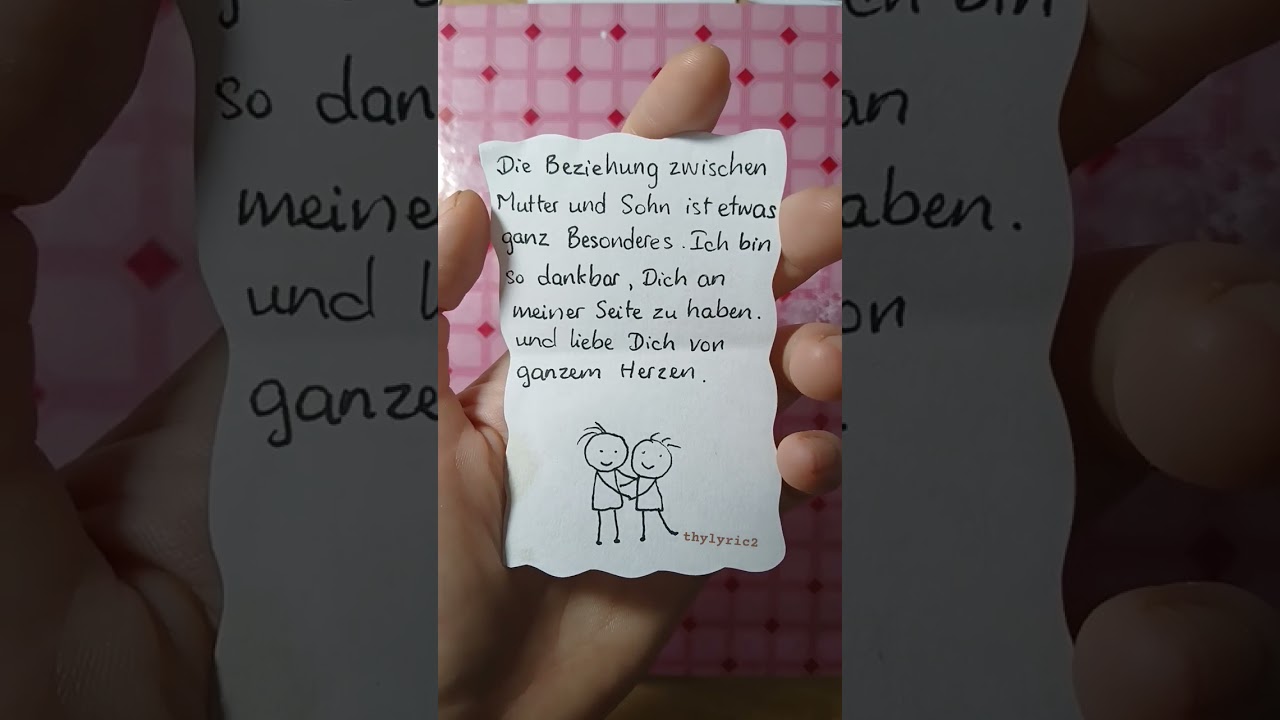 Die Beziehung zwischen
Mutter und Sohn ist etwas
ganz Besonderes. Ich bin
so dankbar, Dich an
meiner Seite zu haben.
und liebe Dich von
ganzem Herzen.
thylyric2